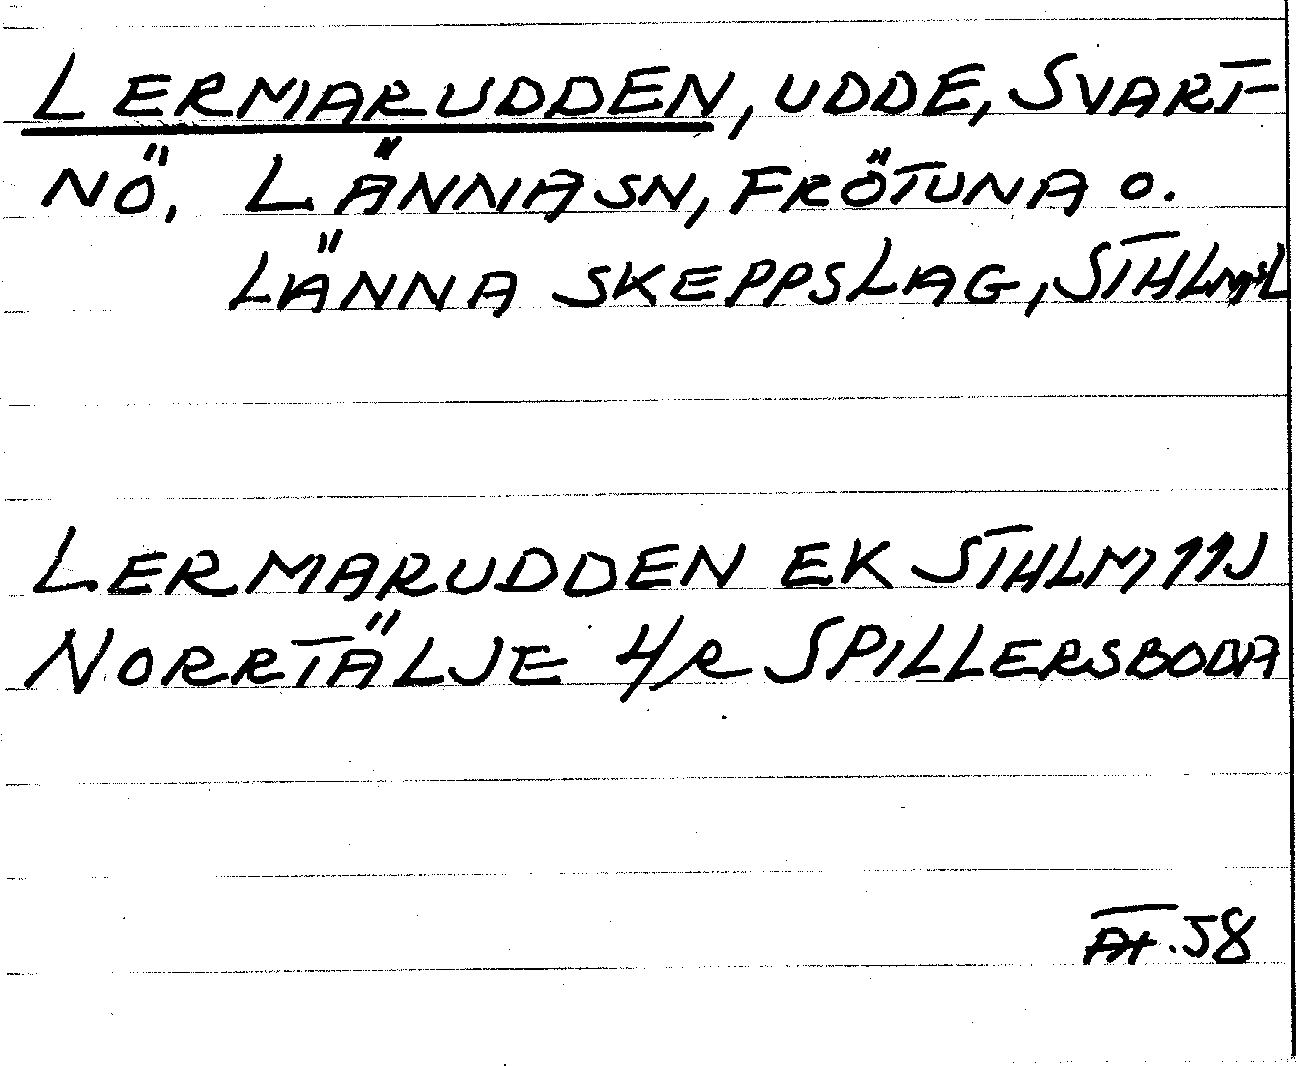 LERMARUDDEN, UDDE, SVART-
NÖ, LÄNNA SN, FRÖTUNA O.
LÄNNA SKEPPSLAG, STHLMSL
LERMARUDDEN EK STHLM 11J
NORRTÄLJE 4/R SPILLERSBODA
58